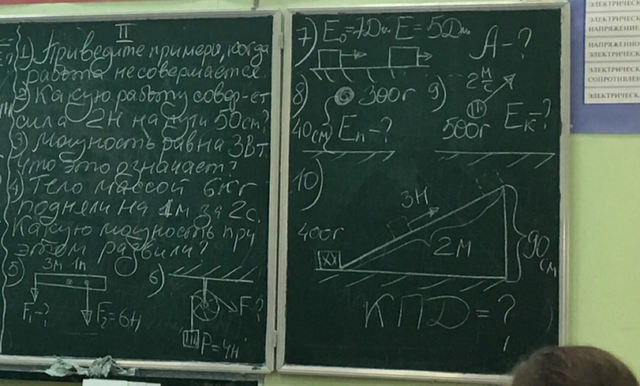 II
1) Приведите примеры, когда
работа не совершается.
2) Какую работу совер-ет
сила 2Н на пути 50см?
3) Мощность равна 3Вт
что это означает?
4) Тело массой 6кг
подняли на 1м за 2с.
Какую мощность при
этом развили?
5)
F₁-?
F₂=6Н
6)
F-?
P=4Н
7) E₀=1Дж E=5Дж A-?
8) 300г
40см
Eп-?
9) 2 м/с
500г
Eк-?
10)
3Н
400г
2М
90см
КПД=?
ЭЛЕКТРИЧЕСК
НАПРЯЖЕНИЕ
ЭЛЕКТРИЧЕСК
СОПРОТИВЛЕН
ЭЛЕКТРИЧЕСК